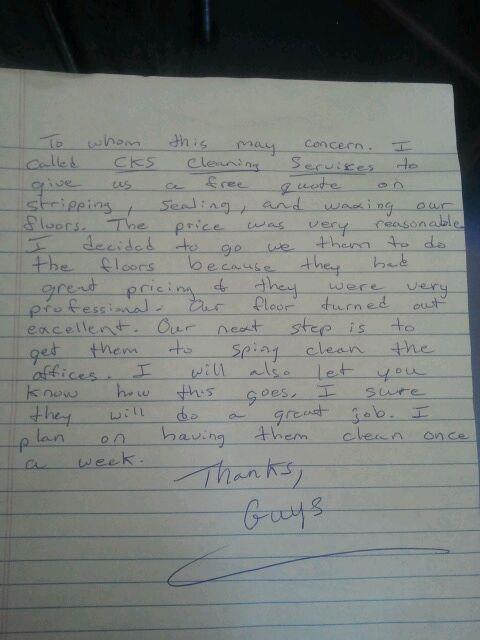 To whom this may concern. I
called CKS Cleaning Services to
give us a free quote on
stripping, sealing, and waxing our
floors. The price was very reasonable
I decided to go w them to do
the floors because they had
great pricing & they were very
professional. Our floor turned out
excellent. Our next step is to
get them to sping clean the
offices. I will also let you
know how this goes, I sure
they will do a great job. I
plan on having them clean once
a week.
Thanks,
Guys